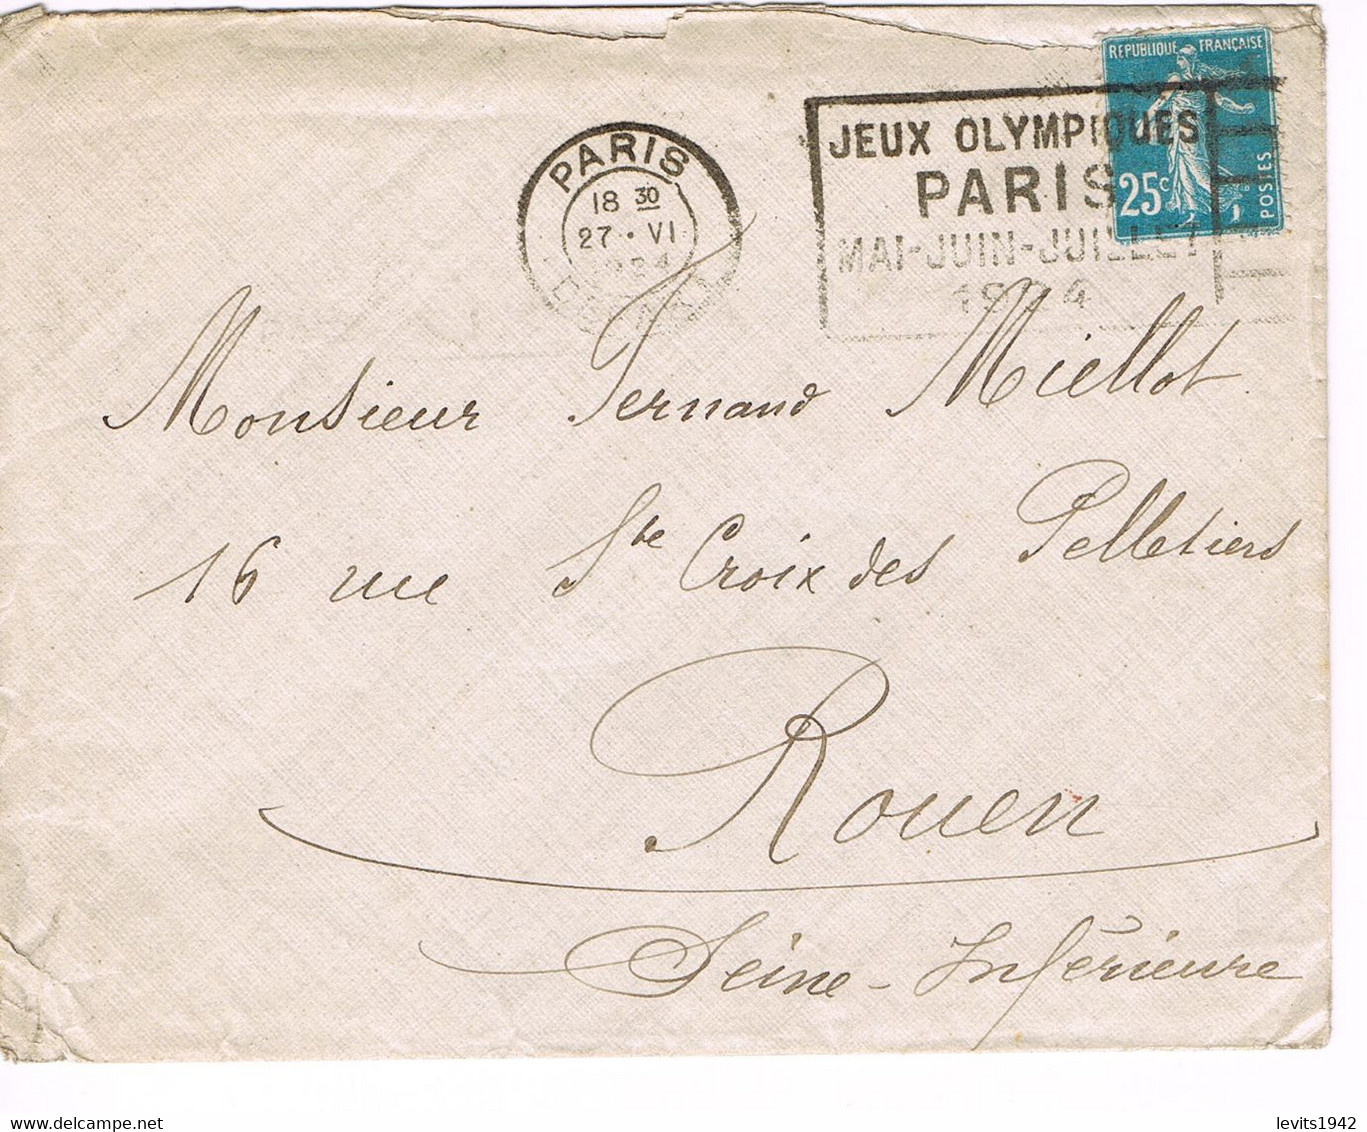 REPUBLIQUE FRANÇAISE
25c
POSTES
PARIS
18 30
27 · VI
1924
JEUX OLYMPIQUES
PARIS
MAI-JUIN-JUILLET
1924
Monsieur Fernand Miellot
16 rue Ste Croix des Pelletiers
Rouen
Seine-Inférieure
levits1942